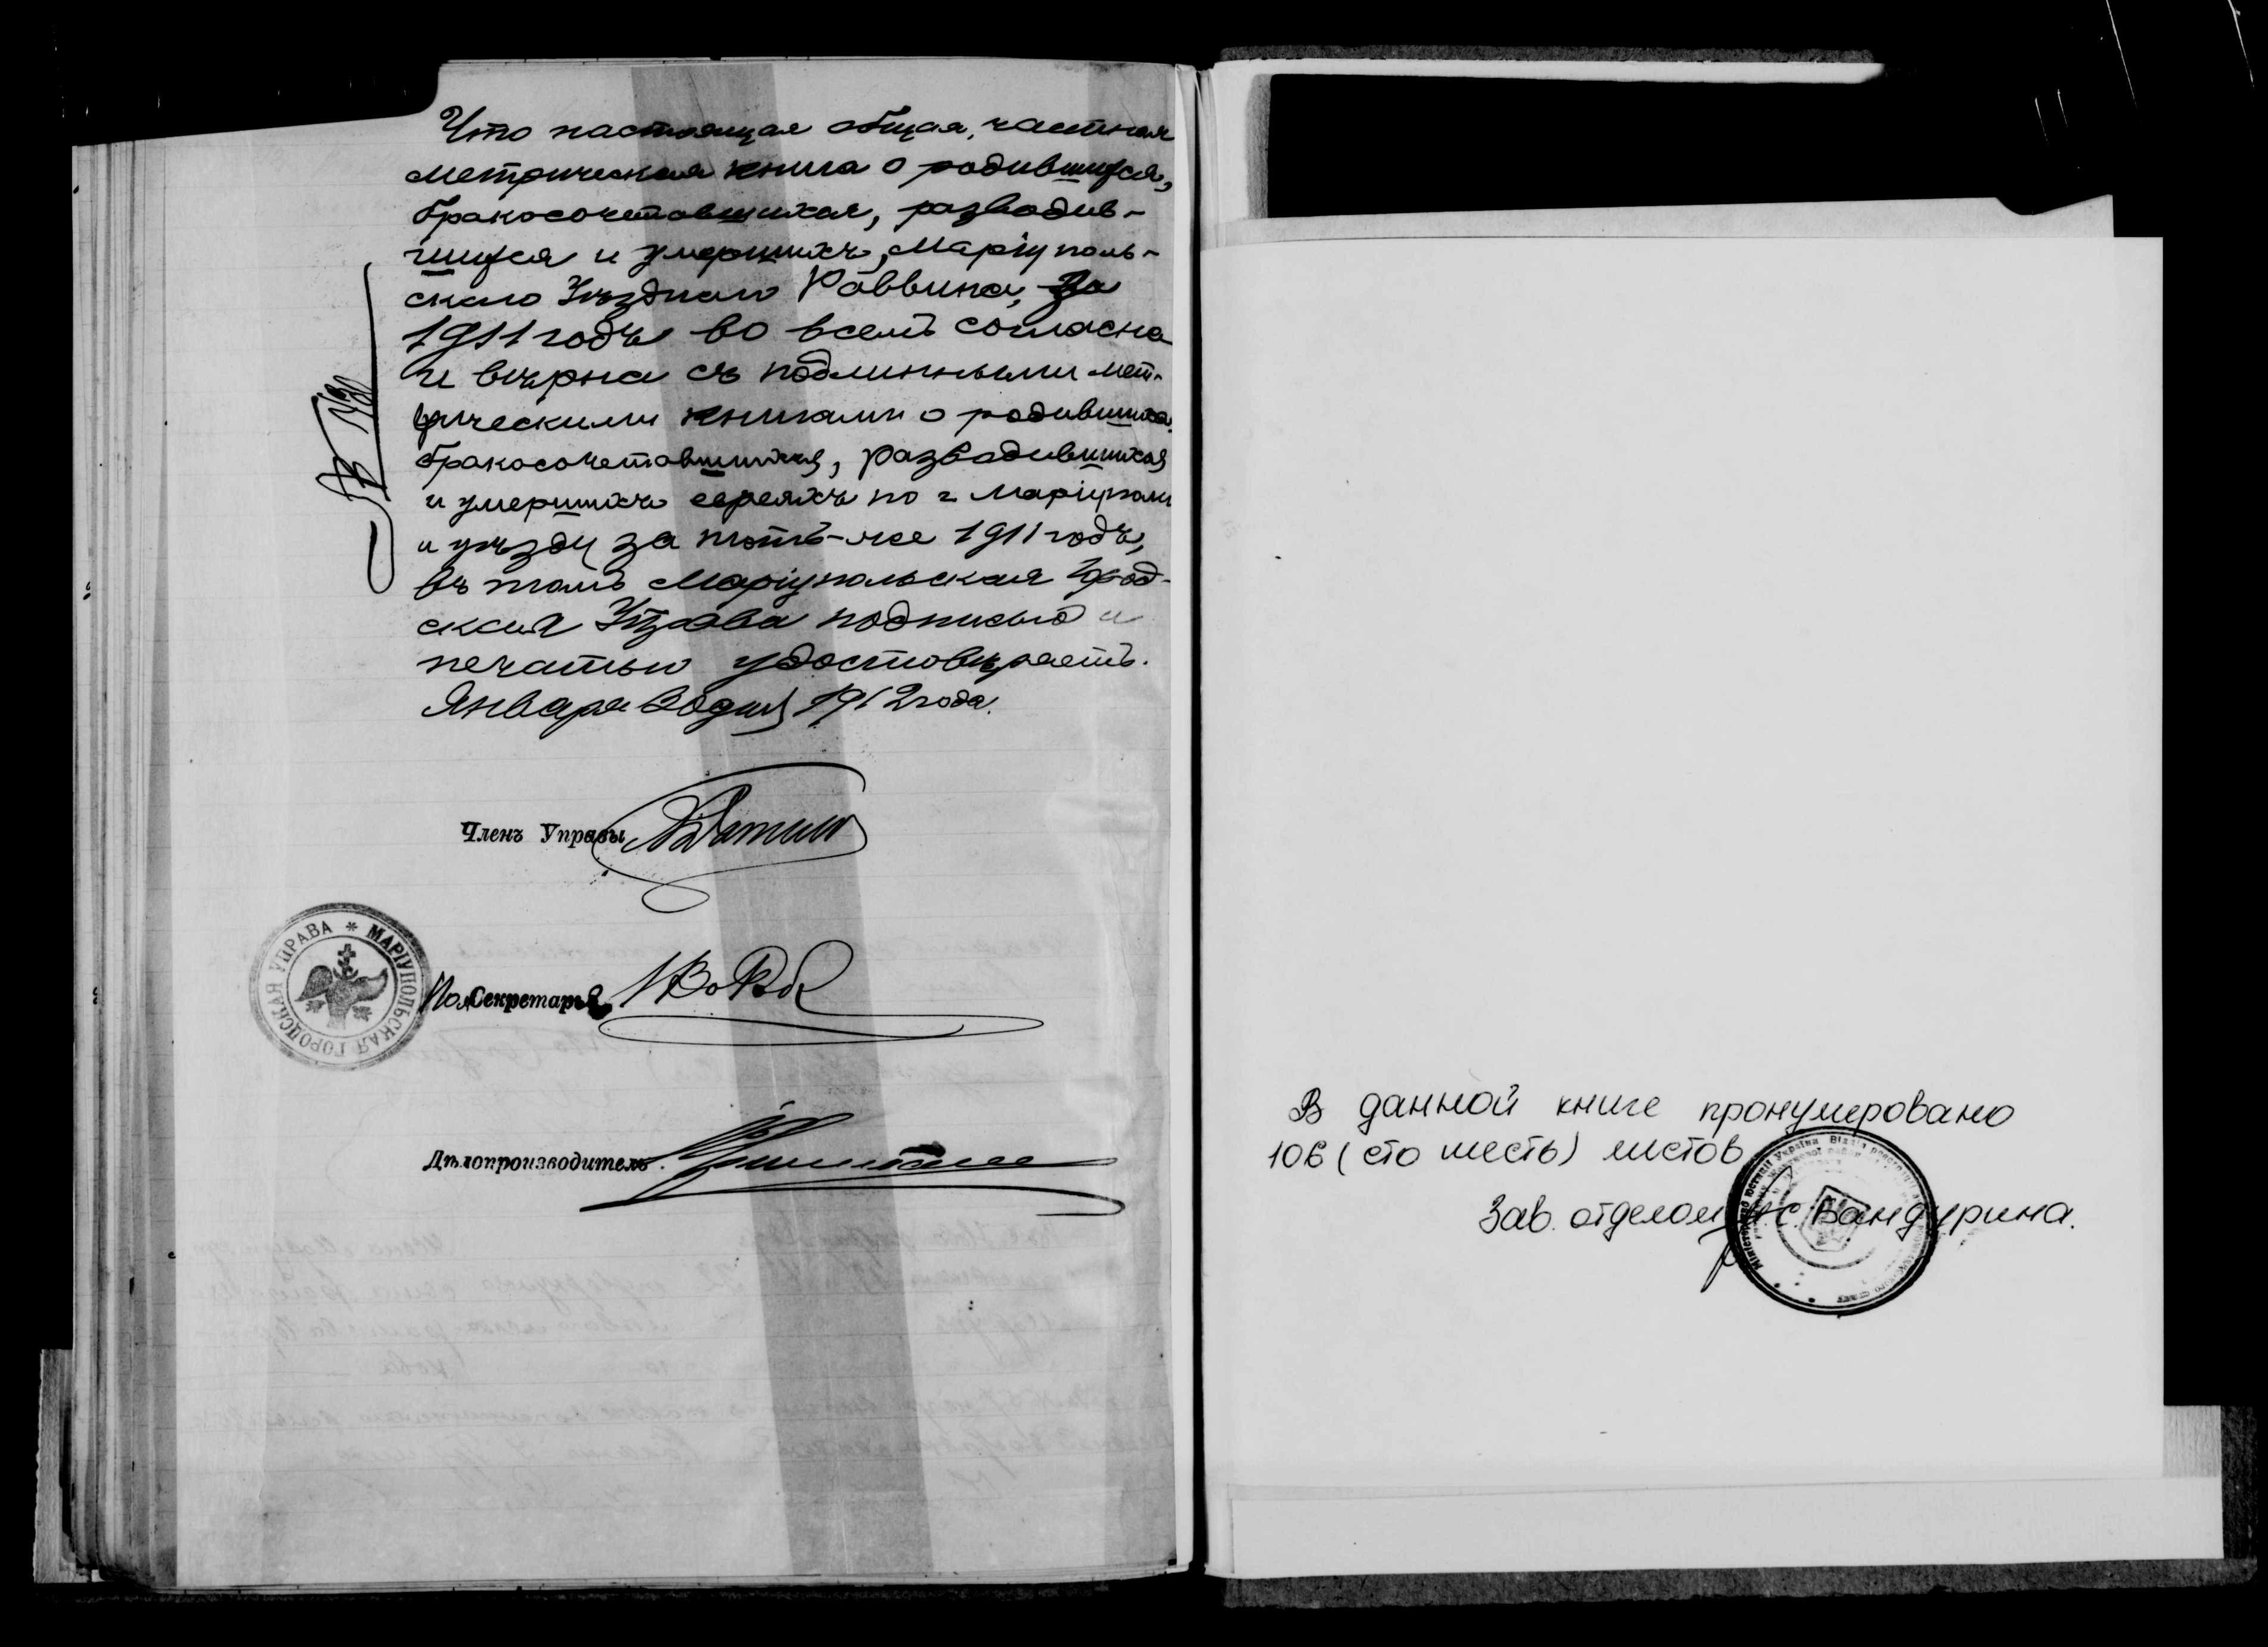 Что настоящая общая, частная
метрическая книга о родившихся,
бракосочетавшихся, разводив-
шихся и умершихъ, Маріуполь-
скаго Уѣзднаго Раввина, за
1911 годъ во всемъ согласна
и вѣрна съ подлинными мет-
рическими книгами о родившихся
бракосочетавшихся, разводившихся
и умершихъ евреяхъ по г Маріуполю
и уѣзду за тотъ-же 1911 годъ,
въ томъ Маріупольская Город-
ская Управа подписью и
печатью удостовѣряетъ.
Января 30 дня 1912 года.
Членъ Управы
МАРІУПОЛЬСКАЯ ГОРОДСКАЯ УПРАВА
Секретаря
Дѣлопроизводитель
В данной книге пронумеровано
106 (сто шесть) листов
Зав. отделом С. Бандурина.
Міністерство юстиції України